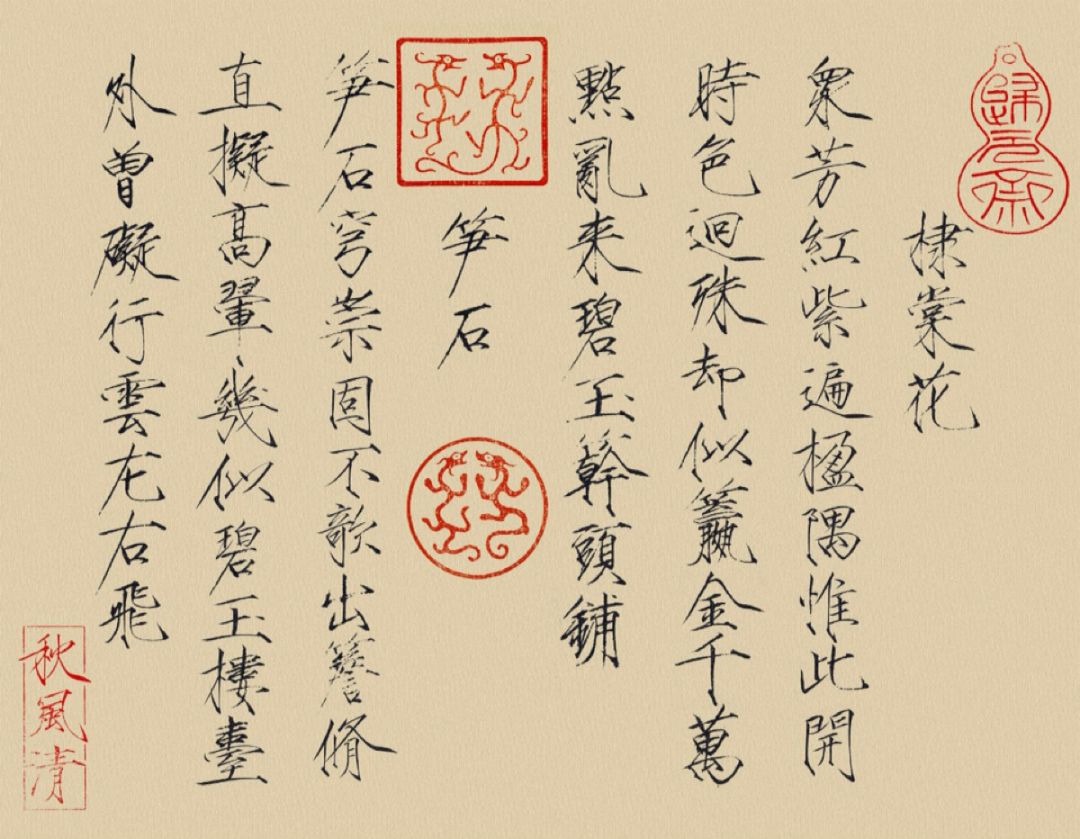 棣棠花
衆芳紅紫遍楹隅惟此開
時色迥殊却似籯金千萬
點亂来碧玉簳頭鋪
笋石
笋石穹崇固不欹出簷脩
直擬高翬幾似碧玉樓臺
外曽礙行雲左右飛
秋風清